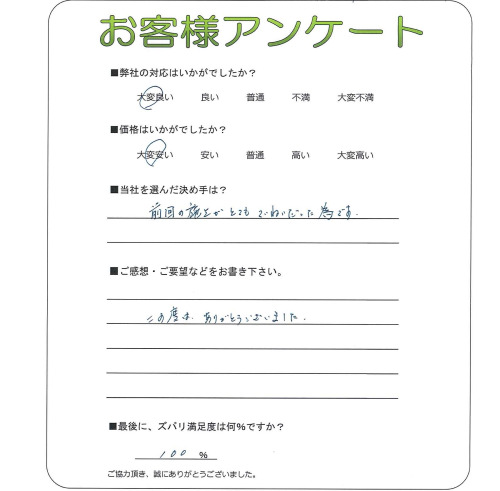 お客様アンケート
■弊社の対応はいかがでしたか？
大変良い 良い 普通 不満 大変不満
■価格はいかがでしたか？
大変安い 安い 普通 高い 大変高い
■当社を選んだ決め手は？
前回の施工がとてもていねいだった為です.
■ご感想・ご要望などをお書き下さい。
この度は、ありがとうございました.
■最後に、ズバリ満足度は何％ですか？
100 %
ご協力頂き、誠にありがとうございました。